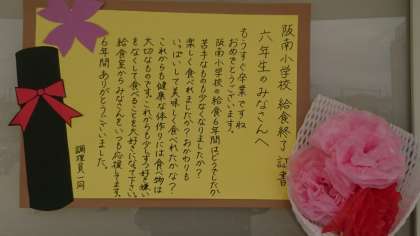 阪南小学校 給食終了証書
六年生のみなさんへ
もうすぐ卒業ですね
おめでとうございます。
阪南小学校の給食6年間はどうでしたか
苦手なものも少なくなりましたか？
楽しく食べれましたか？おかわりも
いっぱいして美味しく食べれたかな？
これからも健康な体作りには食べ物は
大切なものです。これからも少しずつ好き嫌い
をなくして食べることを大好きになって下さい。
給食室からみなさんをいつも応援してます。
6年間ありがとうございました。
調理員一同